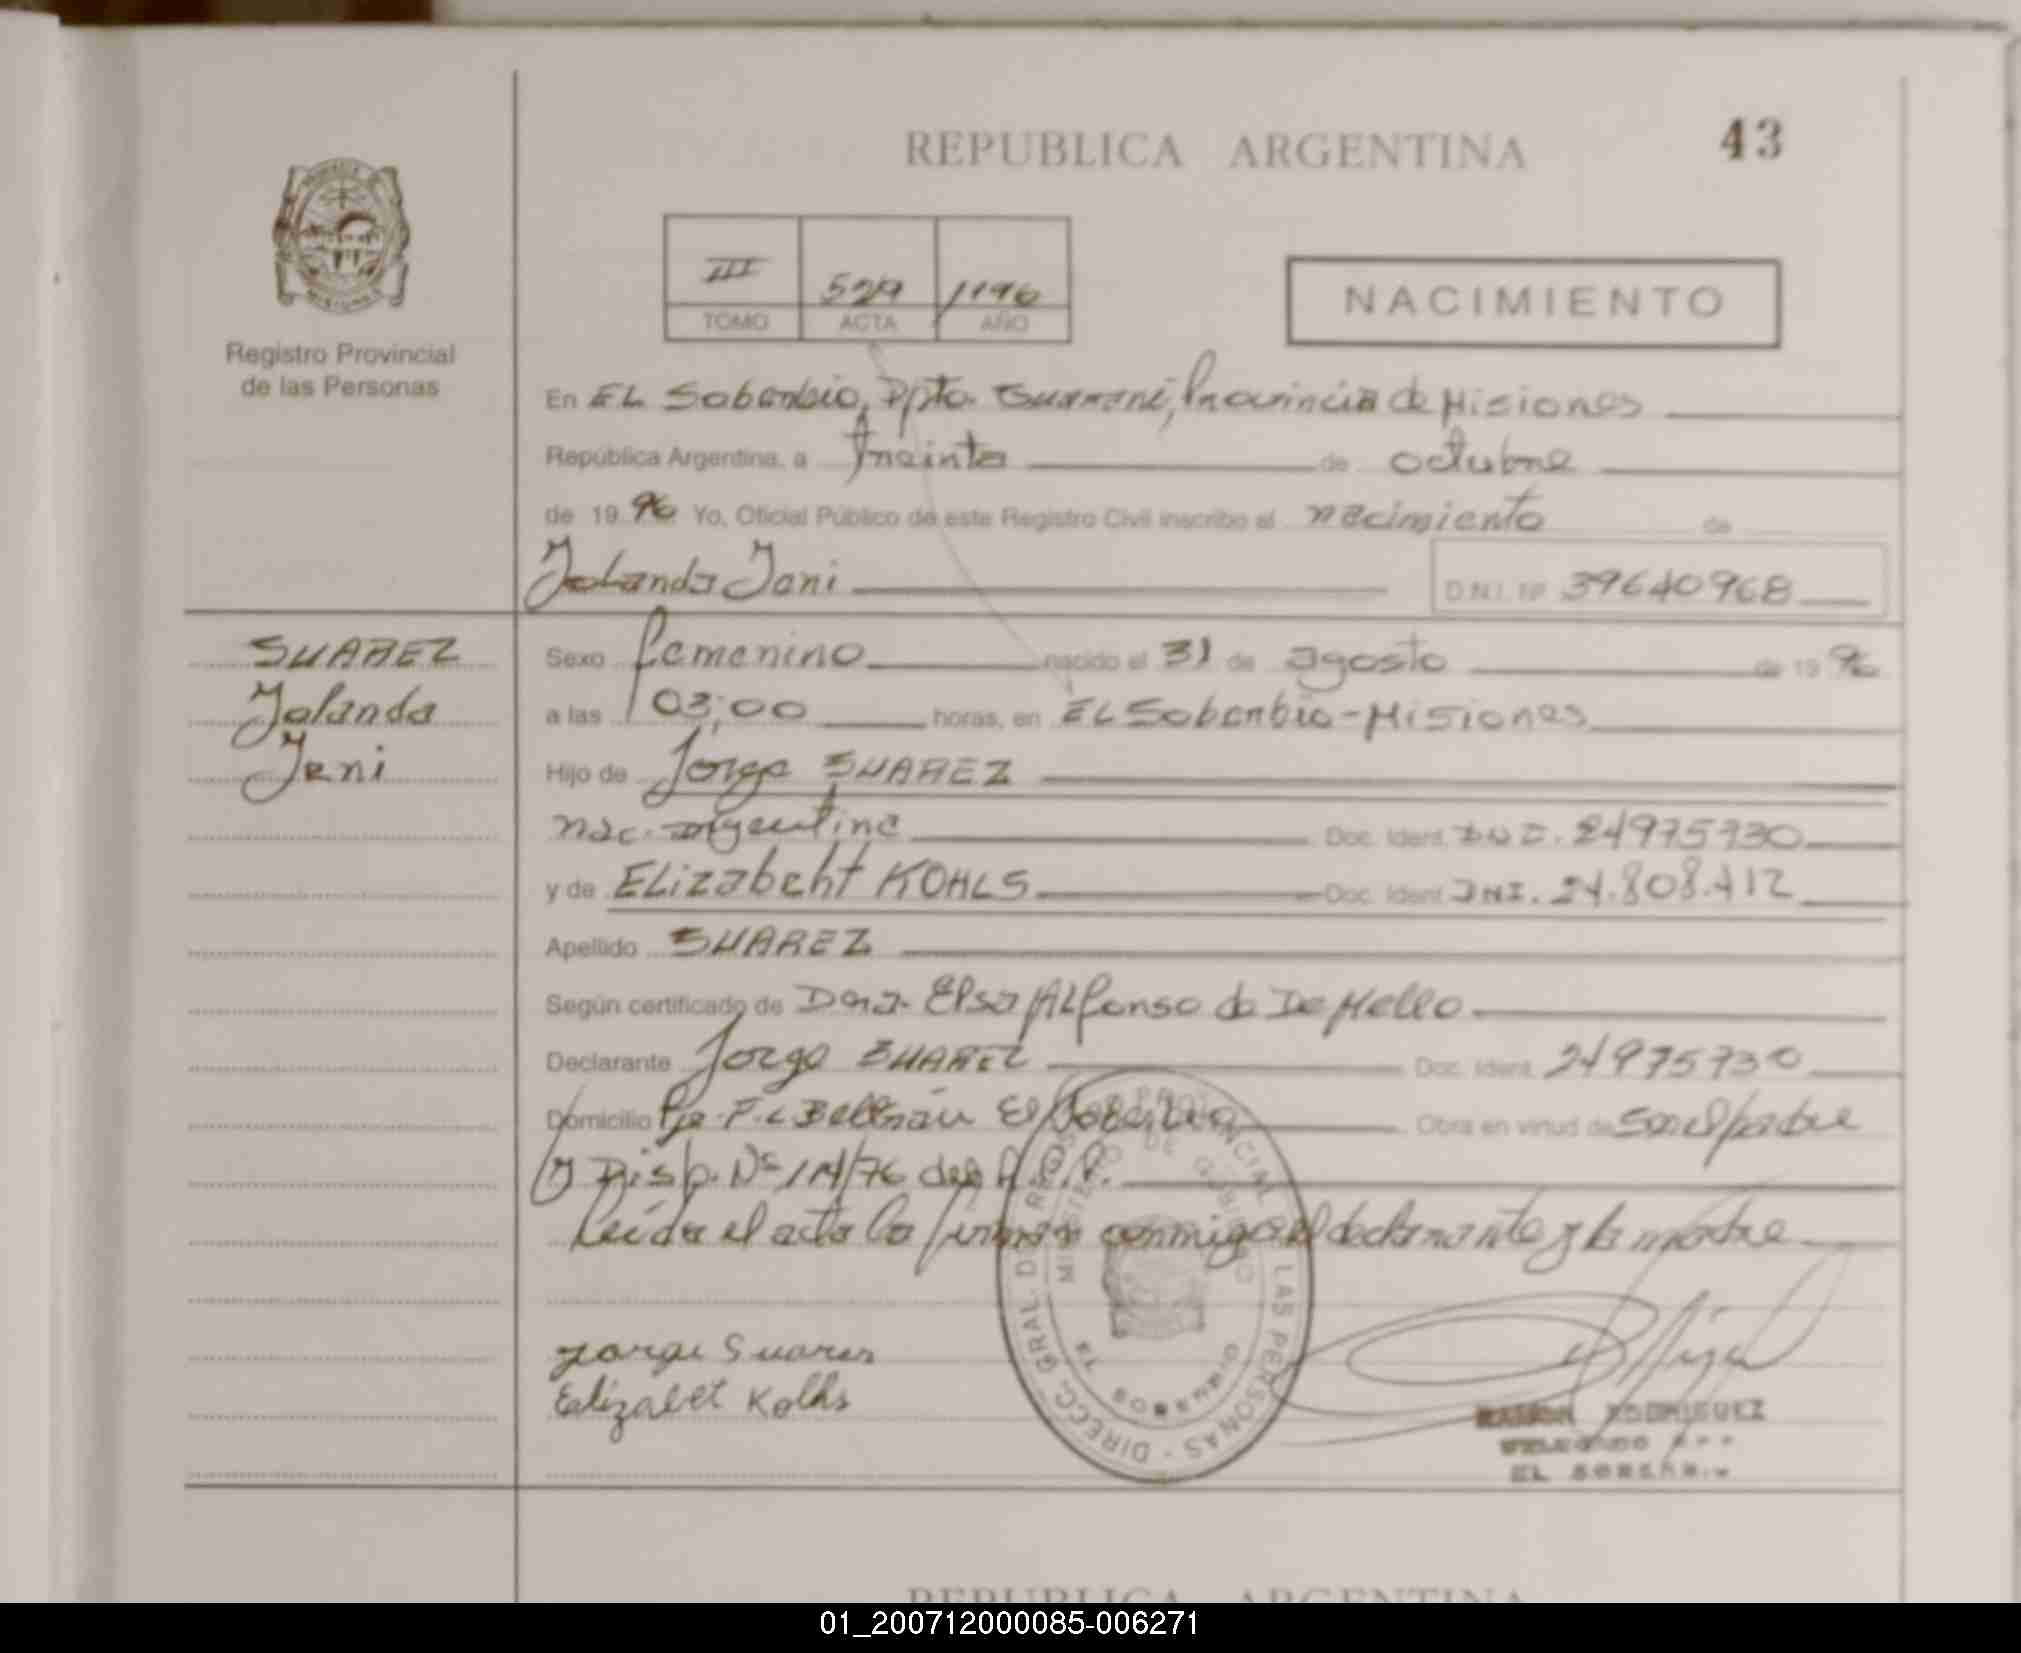 REPUBLICA ARGENTINA
43
Registro Provincial
de las Personas
III 529 1996
TOMO ACTA AÑO
NACIMIENTO
En EL Soberbio, Dpto. Guarani, Provincia de Misiones
República Argentina, a treinta de octubre
de 1996 Yo, Oficial Público de este Registro Civil inscribo el nacimiento de
Yolanda Yani D.N.I. Nº 39640968
SUAREZ
Yolanda
Yani
Sexo femenino nacido el 31 de agosto de 1996
a las 03:00 horas, en EL Soberbio - Misiones
Hijo de Jorge SUAREZ
nac. argentina Doc. Ident. D.N.I. 24975730
y de ELizabeht KOHLS Doc. Ident. DNI. 24.808.412
Apellido SUAREZ
Según certificado de Dra. Elsa ALfonso de De Mello
Declarante Jorge SUAREZ Doc. Ident. 24975730
Domicilio Pje. F. L Beltrán El Soberbio Obra en virtud de ser el padre
y Disp. Nº 114/76 del R.P.P.
Leída el acta la firman conmigo el declarante y la madre
DIRECC. GRAL. DE REGISTRO PROVINCIAL DE LAS PERSONAS
MINISTERIO DE GOBIERNO
Jorge Suares
Elizabet Kolhs
RAMON RODRIGUEZ
DELEGADO
EL SOBERBIO
REPUBLICA ARGENTINA
01_200712000085-006271